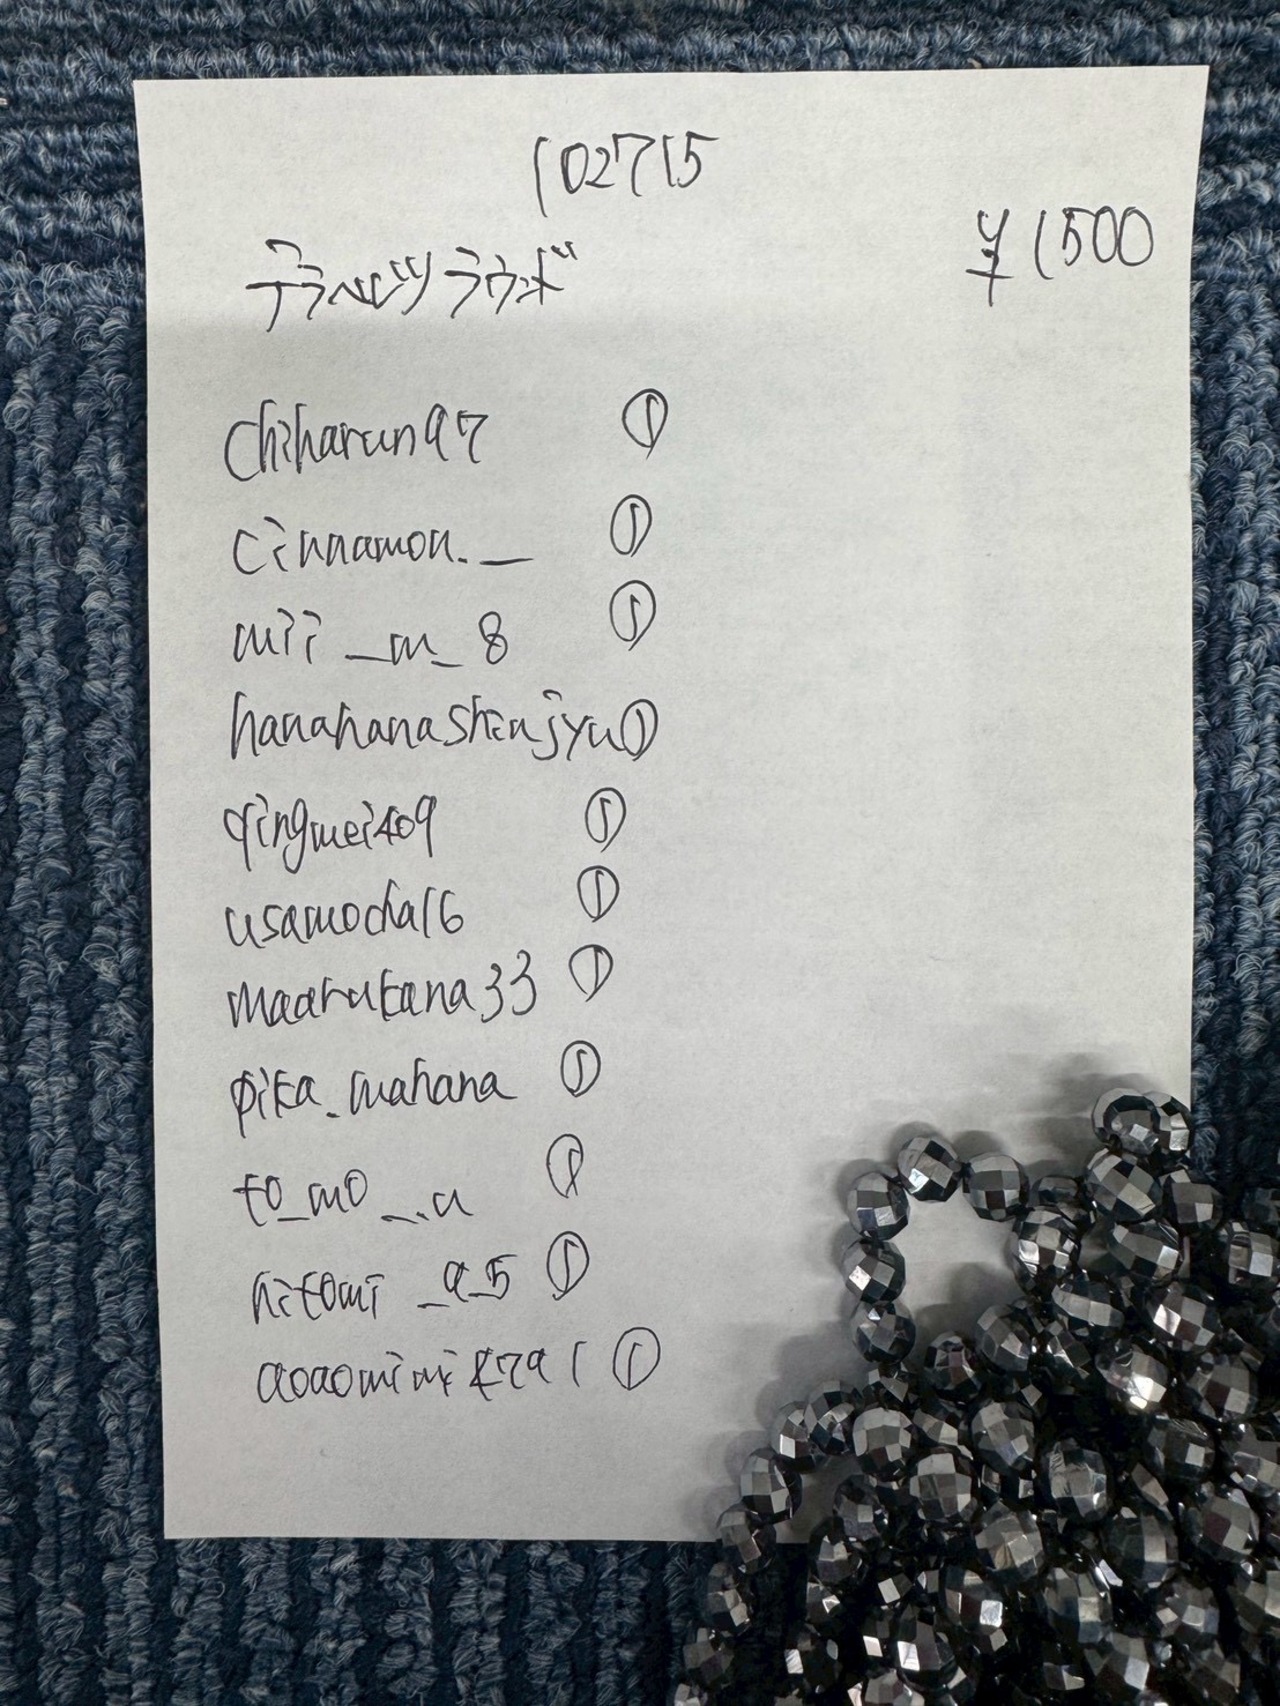 102715
¥1500
テラヘルツラウンド
chiharun97 ①
cinnamon._ ①
mii_m_8 ①
hanahanashinjyu ①
qingmei409 ①
usamocha16 ①
maarutana33 ①
pika.mahana ①
to_mo__.u ①
hitomi_a_5 ①
aoaomimi4791 ①